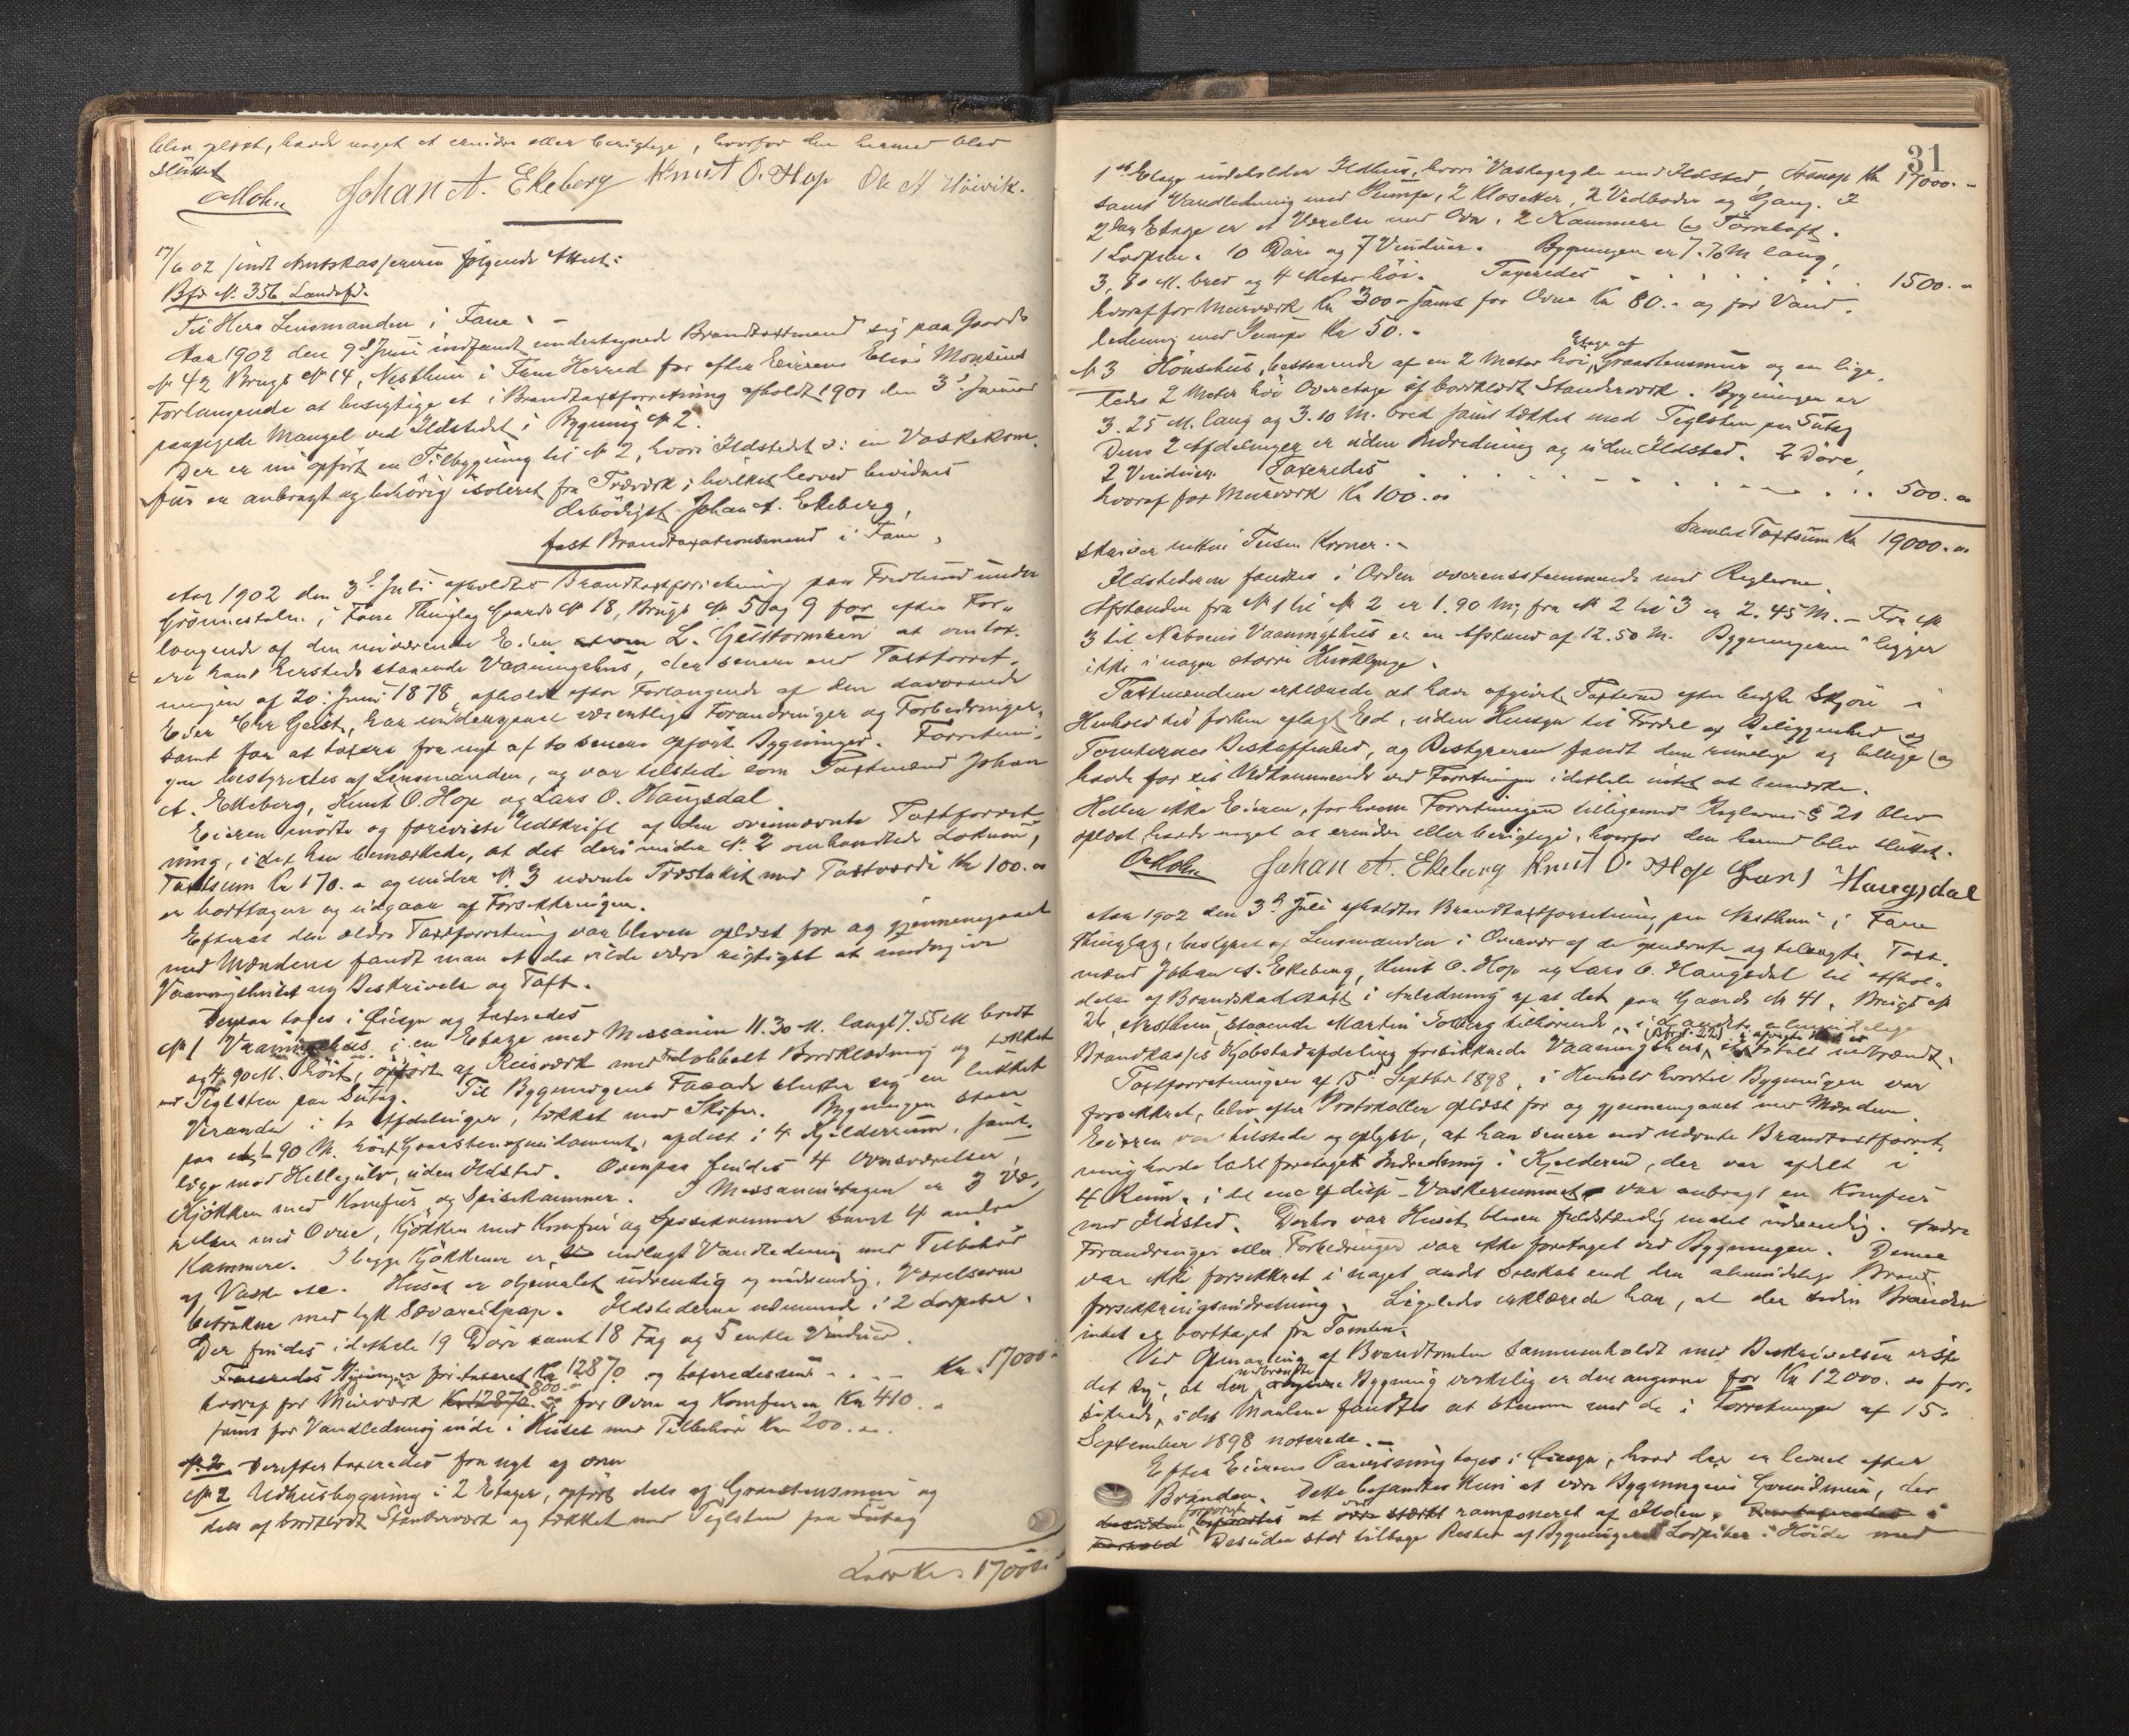 blev oplæst, havde noget at erindre eller berigtige, hvorfor den hermed blev
sluttet
OMohn Johan A. Ekeberg Knut O. Hop Ole A Høivik.
17/6 02 sendt Amtskassereren følgende Attest:
Bfd. N. 356, Landsfd.
Til Herr Lensmanden i Fane. -
Aar 1902 den 9de Juni indfandt undertegnede Brandtaxtmand sig paa Gaards
N 42 Brugs N 14, Nestthun i Fane Herred for efter Eierens Elias Monsens
Forlangende at besigtige et i Brandtaxtforretning afholdt 1901 den 3de Januar
paapegede Mangel ved Ildstedet i Bygning N 2.
Der er nu opført en Tilbygning til N 2, hvori Ildstedet ɔ: en Vaskekom-
fur er anbragt og behörig isoleret fra Træværk, hvilket herved bevidnes
Ærbödigst Johan A. Ekeberg,
fast Brandtaxationsmand i Fane,
Aar 1902 den 3die Juli afholdtes Brandtaxtforretning paa Fredlund under
Grönnestølen i Fane Thinglag Gaards N 18, Brugs N 5 og 9 for efter For-
langende af den nuværende Eier L. Geittormsen at omtax-
ere hans Eiersteds staaende Vaaningshus, der senere end Taxtforret-
ningen af 20. Juni 1878, afholdt efter Forlangende af den daværende
Eier Chr Geist, har undergaaet væsentlige Forandringer og Forbedringer,
samt for at taxere fra nyt af to senere opført Bygninger. Forretnin-
gen bestyredes af Lensmanden, og var tilstede som Taxtmænd Johan
A. Ekeberg, Knut O. Hop og Lars O. Haugsdal.
Eieren mødte og foreviste Udskrift af den ovennævnte Taxtforret-
ning, idet han bemærkede, at det deri under N. 2 omhandlede Lokum,
Taxtsum Kr 170. - og under N. 3 nævnte Træstakit med Taxtværdi Kr 100. -
er borttagne og udgaar af Forsikkringen.
Efterat den ældre Taxtforretning var bleven oplæst for og gjennemgaaet
med Mændene fandt man at det vilde være rigtigst at undergive
Vaaningshuset ny Beskrivelse og Taxt.
Derpaa toges i Øiesyn og taxeredes
N 1 Vaaningshus. i en Etage med Messanin 11.30 M. langt 7.55 M bredt
og 4.90 M. høit, opført af Reisværk med dobbelt Bordklædning og tækket
med Teglsten paa Sutag. Til Bygningens Facade slutter sig en lukket
Veranda i to Afdelinger, tækket med Skifer. Bygningen staar
paa 90 M. høit Graastensfundament, afdelt i 4 Kjelderrum, samt-
lige med Hellegulv, uden Ildsted. Ovenpaa findes 4 Ovnsværelser,
Kjøkken med Komfur og Spisekammer. I Messaninetagen er 3 Væ-
relser med Ovne, Kjøkken med Komfur og Spisekammer samt 4 andre
Kammere. I begge Kjøkkener er indlagt Vandledning med Tilbehør
af Vaske etc. Huset er oljemalet udvendig og indvendig. Værelserne
betrukne med tyk Sævareilpap. Ildstederne udmunde i 2 Lodpiber.
Der findes idethele 19 Døre samt 18 Fag og 5 enkle Vinduer.
Taxeredes Bygningen før taxeret Kr 12870 og taxeredes nu . . . . Kr. 17000 -
hvoraf for Murværk Kr 12870. 800.- for Ovne og Komfurer Kr 410. -
samt for Vandledning inde i Huset med Tilbehør Kr 200. -
N. 2. Derefter taxeredes fra nyt af
N 2 Udhusbygning i 2 Etager, opført dels af Graastensmur og
dels af bordklædt Stenderværk og tækket med Teglsten paa Sutag
Lar Kr. 17000.-
31
1ste Etage indeholder Ildhus, hvori Vaskegryde med Ildsted, Transp Kr 17000. -
samt Vandledning med Pumpe, 2 Klosetter, 2 Vedboder og Gang. I
2den Etage er et Værelse med Ovn. 2 Kammere og Tørreloft.
1 Lodpibe. 10 Døre og 7 Vinduer. Bygningen er 7.70 M lang,
3,80 M. bred og 4 Meter høi. Taxeredes . . . . . . . 1500. -
hvoraf for Murværk Kr 300 - samt for Ovne Kr 80. - og for Vand-
ledning med Pumpe Kr 50. -
N 3 Hönsehus, bestaaende af en 2 Meter høi Etage af Graastensmur og en lige-
ledes 2 Meter høi Overetage af bordklædt Stenderværk. Bygningen er
3.25 M. lang og 3.10 M. bred samt tækket med Teglsten paa Sutag
Dens 2 Afdelinger er uden Indredning og uden Ildsted. 2 Døre,
2 Vinduer. Taxeredes . . . . . . . . . . 500. -
hvoraf for Murværk Kr 100. -
Samlet Taxtsum Kr 19000. -
skriver nitten Tusen Kroner. -
Ildstederne fandtes i Orden overensstemmende med Reglerne.
Afstanden fra N 1 til N 2 er 1.90 M, fra N 2 til 3 er 2.45 M. - Fra N
3 til Naboens Vaaningshus er en Afstand af 12.50 M. Bygningerne ligger
ikke i nogen større Husklynge.
Taxtmændene erklærede at have afgivet Taxterne efter bedste Skjøn i
Henhold til forhen aflagt Ed, uden Hensyn til Fordel af Beliggenhed og
Tomternes Beskaffenhed, og Bestyreren fandt dem rimelige og billige og
havde for sit Vedkommende ved Forretningen idethele intet at bemærke.
Heller ikke Eieren, for hvem Forretningen tilligemed Reglernes § 21 blev
oplæst, havde noget at erindre eller berigtige, hvorfor den hermed blev sluttet.
OMohn Johan A. Ekeberg Knut O. Hop Lars Haugsdal
Aar 1902 den 3die Juli afholdtes Brandtaxtforretning paa Nestthun i Fane
Thinglag, bestyret af Lensmanden i Overvær af de opnævnte og tilsagte Taxt-
mænd Johan A. Ekeberg, Knut O. Hop og Lars O. Haugsdal til afhol-
delse af Brandskadetaxt i Anledning af at det paa Gaards N 41, Brugs N
26, Nestthun, staaende Martin Solberg tilhörende, i Landets almindelige
Brandkasses Kjøbstadafdeling forsikkrede Vaaningshus, er totalt nedbrændt.
Taxtforretningen af 15de Septbr 1898, i Henhold hvortil Bygningen var
forsikkret, blev efter Protokollen oplæst for og gjennemgaaet med Mændene.
Eieren var tilstede og oplyste, at han senere end nævnte Brandtaxtforret-
ning havde ladet foretaget Indredning i Kjelderen, der var afdelt i
4 Rum. i det ene af disse - Vaskerummet - var anbragt en Komfur
med Ildsted. Derhos var Huset bleven fuldstændig malet udvendig. Andre
Forandringer eller Forbedringer var ikke foretaget ved Bygningen. Denne
var ikke forsikkret i noget andet Selskab end den almindelige Brand-
forsikkringsindretning. Ligeledes erklærede han, at der siden Branden
intet er borttaget fra Tomten.
Ved Opmaaling af Brandtomten sammenholdt med Beskrivelsen viste
det sig, at den nedbrændte Bygning virkelig er den angivne for Kr 12000. - for-
sikrede, idet Maalene fandtes at stemme med de i Forretningen af 15.
September 1898 noterede. -
Efter Eierens Paavisning toges i Øiesyn, hvad der er levnet efter
Branden. Dette befandtes kun at være Bygningens Grundmur, der
at være stærkt ramponeret af Ilden.
Desuden stod tilbage Rester af Bygningens Lodpiber i Høide med